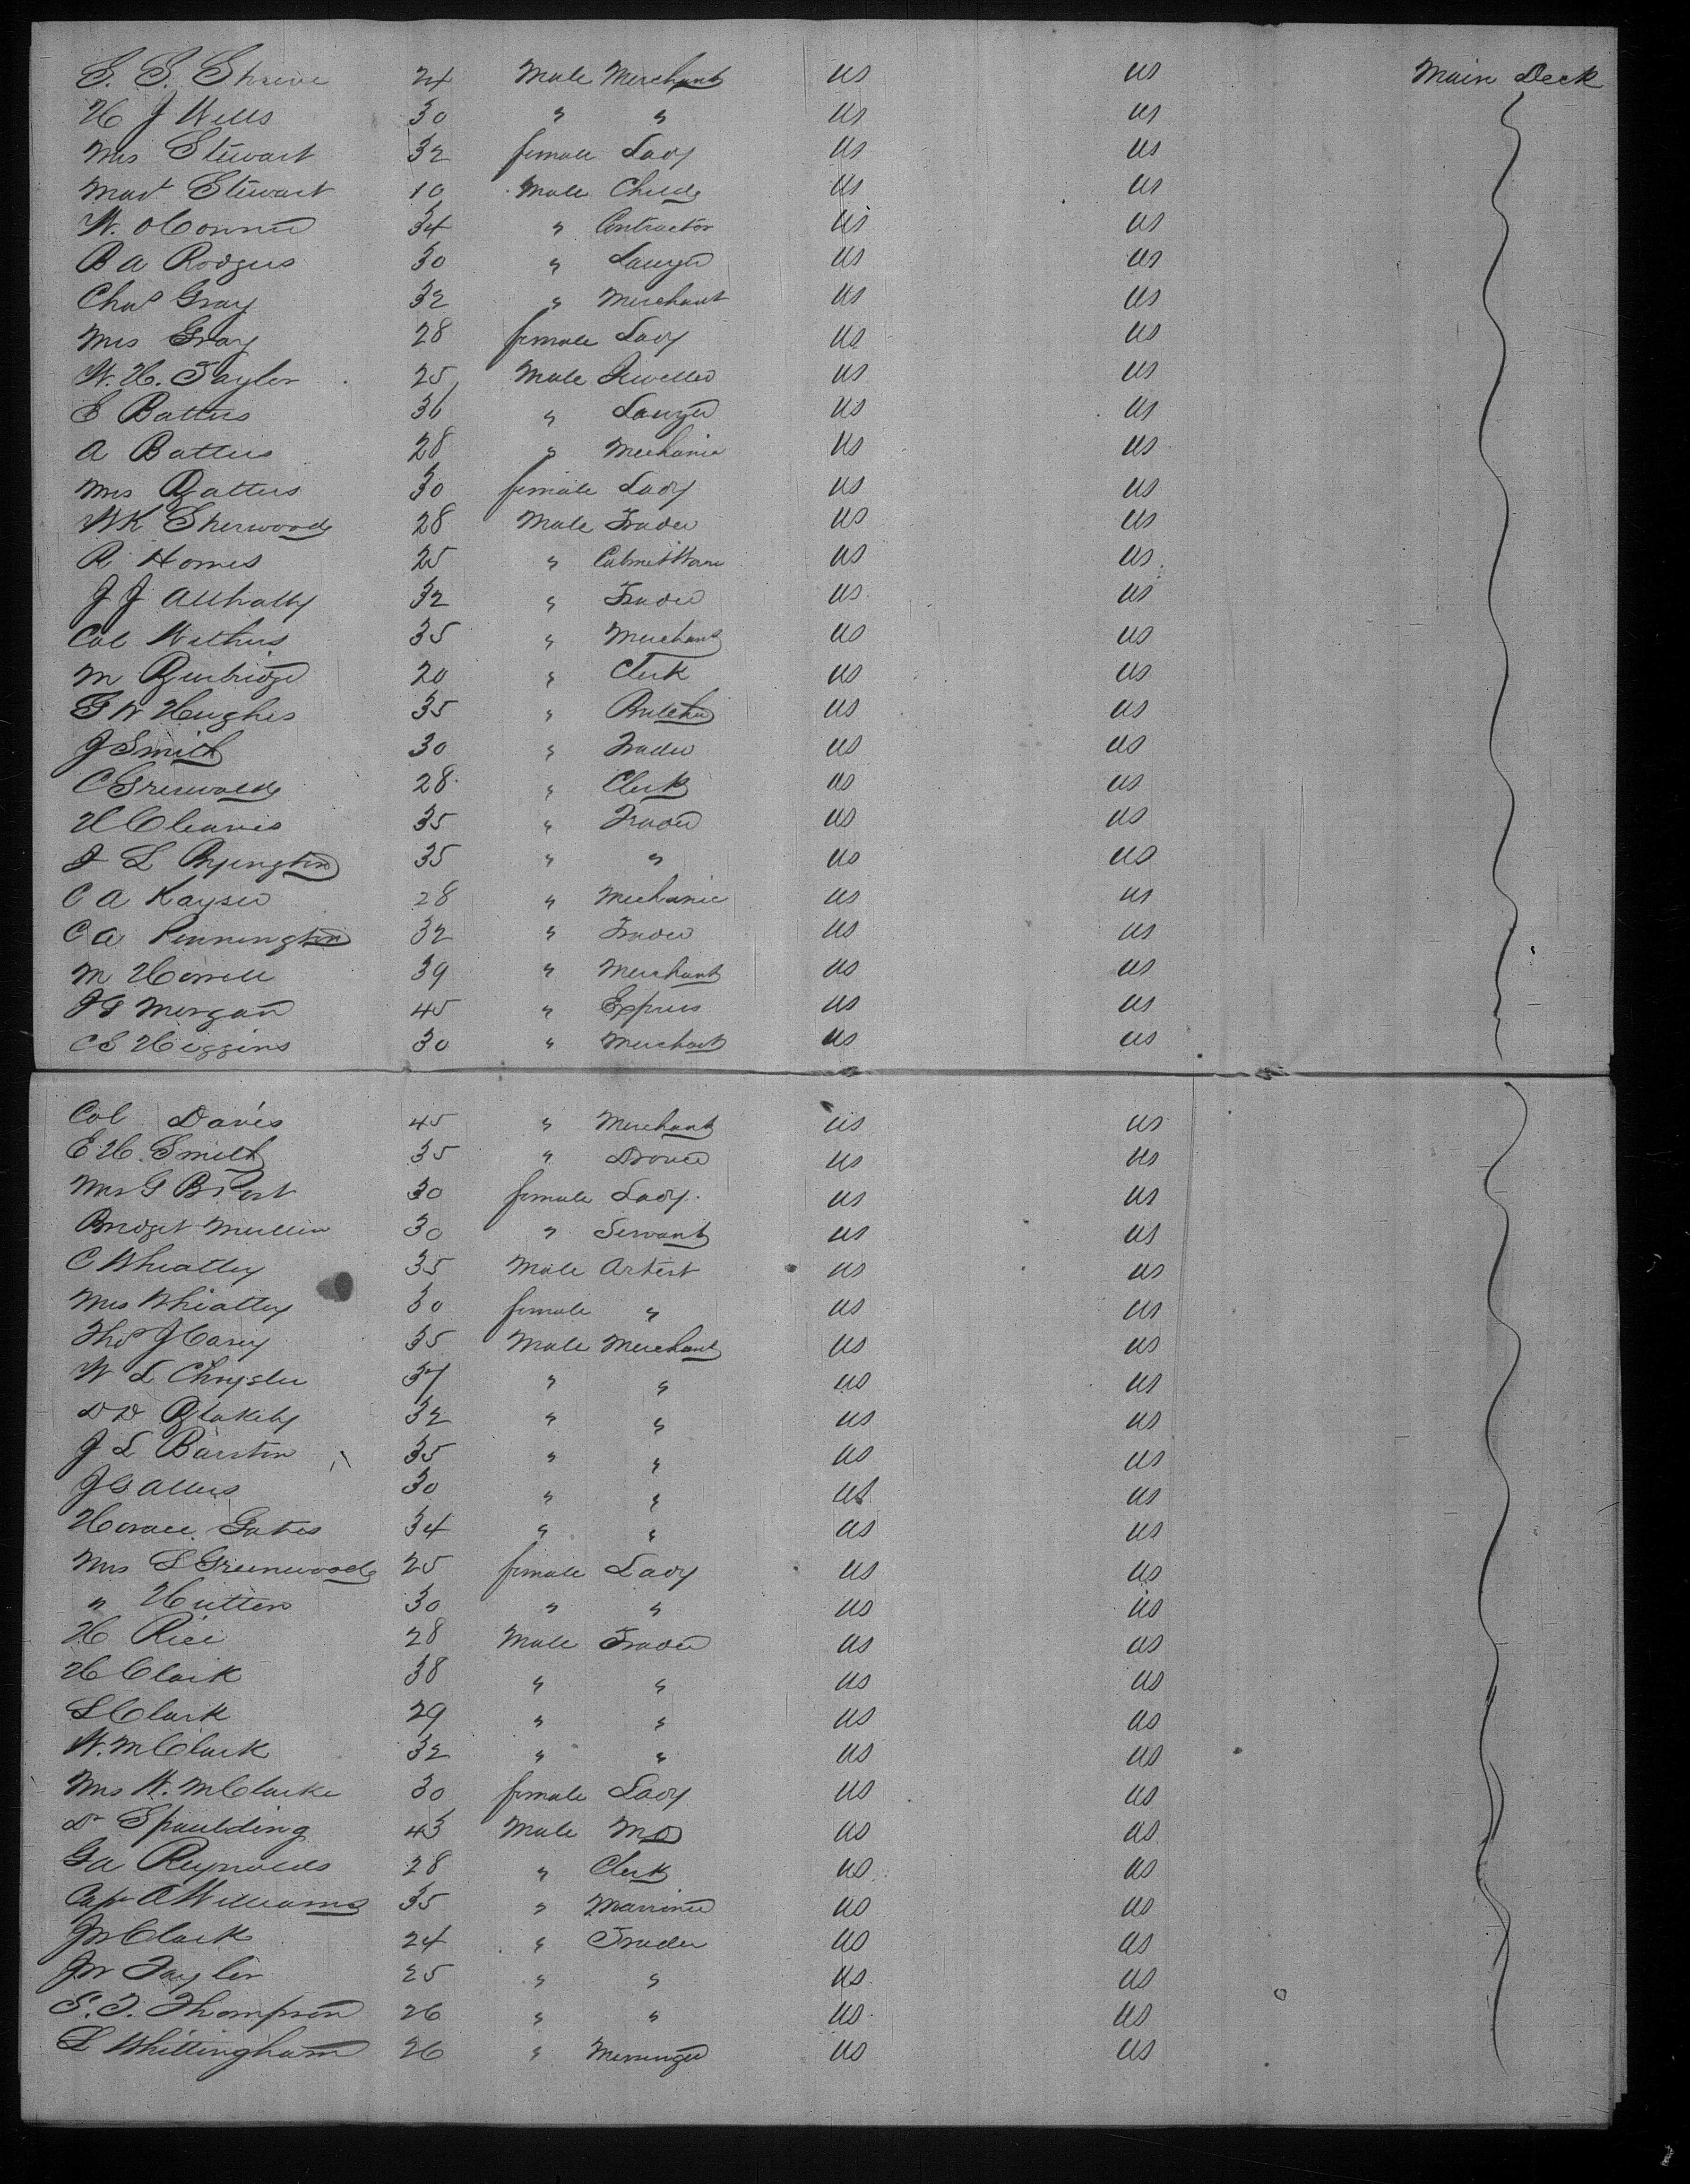 S. S. Shreve 24 Male Merchant US US Main Deck
H J Wells 30 " " US US
Mrs Stewart 32 female Lady US US
Mast Stewart 10 Male Child US US
W. OConner 34 " Contractor US US
B A Rodgers 30 " Lawyer US US
Chas Gray 32 " Merchant US US
Mrs Gray 28 female Lady US US
W. H. Taylor 25 Male Jeweller US US
E Batters 36 " Lawyer US US
A Batters 28 " Mechanic US US
Mrs Batters 30 female Lady US US
WK Sherwood 28 Male Trader US US
R Homes 25 " US US
J J 32 " Trader US US
Col Withers 35 " Merchant US US
M Burbridge 20 " Clerk US US
G W Hughes 35 " Butcher US US
J Smith 30 " Trader US US
C Griswold 28 " Clerk US US
H Cleaves 35 " Trader US US
J L Byington 35 " " US US
C A Kayser 28 " Mechanic US US
C A Pennington 32 " Trader US US
M Horrell 39 " Merchant US US
J G Morgan 45 " Express US US
C S Higgins 30 " Merchant US US
Col Davis 45 " Merchant US US
E H Smith 35 " Drover US US
Mrs G B Post 30 female Lady US US
Bridget Mullin 30 " Servant US US
C Wheatley 35 Male Artist US US
Mrs Wheatley 30 female " US US
Thos J Carey 35 Male Merchant US US
W L Chrysler 37 " " US US
D D Blakely 32 " " US US
J L Barston 35 " " US US
J G Allers 30 " " US US
Horace Gates 34 " " US US
Mrs L Greenwood 25 female Lady US US
" Hutton 30 " " US US
H Rice 28 Male Trader US US
H Clark 38 " " US US
S Clark 29 " " US US
W. M Clark 32 " " US US
Mrs W. M Clarke 30 female Lady US US
Dr Spaulding 43 Male MD US US
G A Reynolds 28 " Clerk US US
Capt A Williams 35 " Marriner US US
JW Clark 24 " Trader US US
JW Taylor 25 " " US US
S. T. Thompson 26 " " US US
L Whittingham 26 " Messenger US US